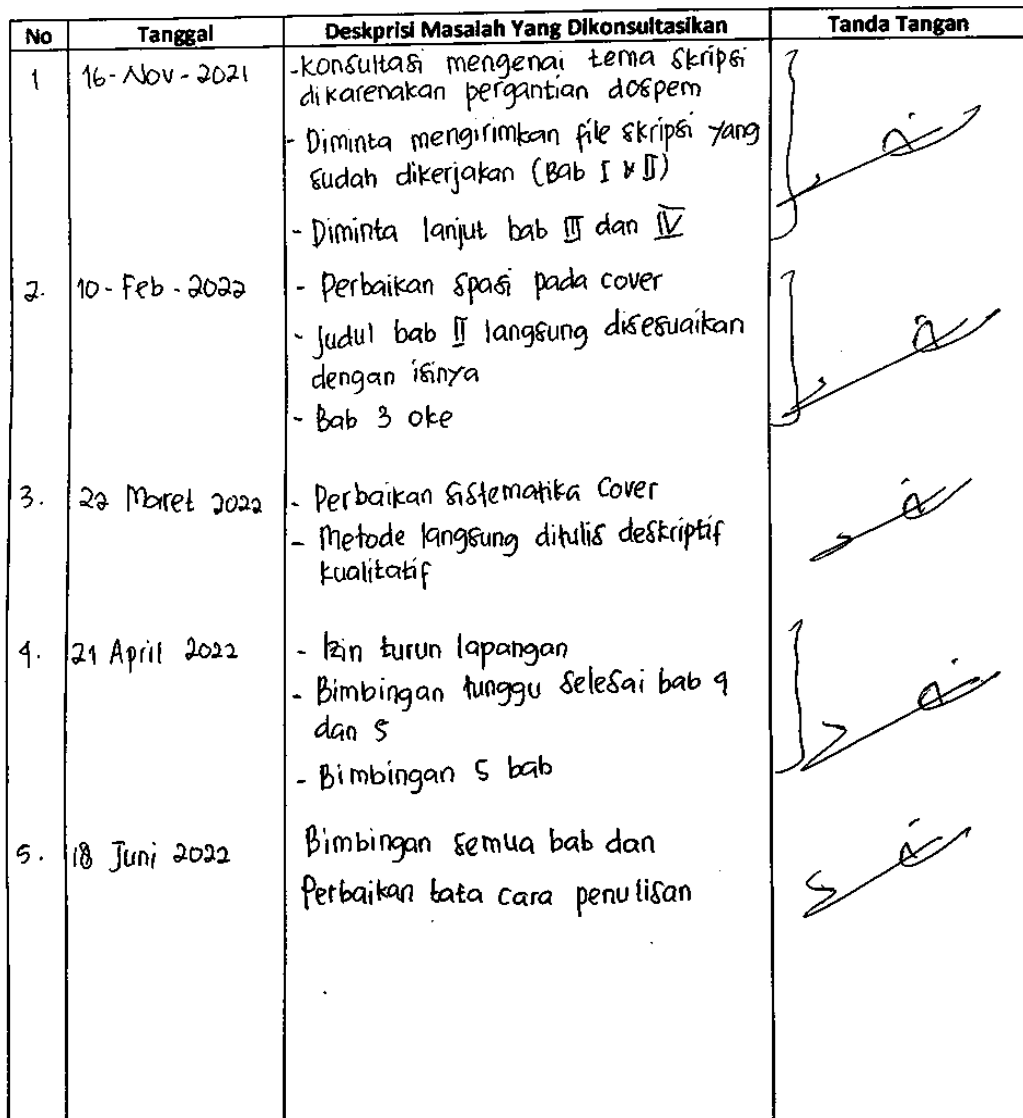 No Tanggal Deskprisi Masalah Yang Dikonsultasikan Tanda Tangan
1 16-Nov-2021 -Konsultasi mengenai tema skripsi
dikarenakan pergantian dospem
- Diminta mengirimkan file skripsi yang
sudah dikerjakan (Bab I & II)
- Diminta lanjut bab III dan IV
2. 10-Feb-2022 - Perbaikan spasi pada cover
- Judul bab II langsung disesuaikan
dengan isinya
- Bab 3 oke
3. 22 Maret 2022 - Perbaikan sistematika Cover
- Metode langsung ditulis deskriptif
kualitatif
4. 21 April 2022 - Izin turun lapangan
- Bimbingan tunggu selesai bab 4
dan 5
- Bimbingan 5 bab
5. 18 Juni 2022 Bimbingan semua bab dan
Perbaikan tata cara penulisan